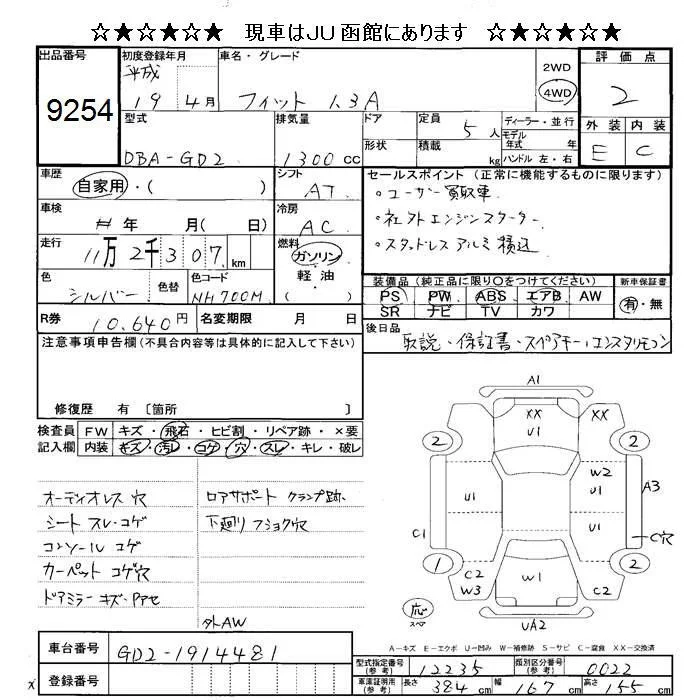 ☆★☆★☆★ 現車はJU函館にあります ☆★☆★☆★
出品番号 初度登録年月 車名・グレード 評価点
9254 平成 19 4月 フィット 1.3A 2WD 4WD 2
型式 排気量 ドア 定員 5人 ディーラー・並行 外装 内装
DBA-GD2 1300cc 形状 積載 kg モデル年式 年 ハンドル 左・右 E C
車歴 自家用・( ) シフト AT セールスポイント(正常に機能するものに限ります)
車検 年 月( 日) 冷房 AC 。ユーザー買取車
走行 11万2千307km 燃料 ガソリン 。社外エンジンスターター
軽油 ( ) 。スタッドレスアルミ積込
色 シルバー 色替 色コード NH700M 装備品(純正品に限り○をつけてください) 新車保証書
PS PW ABS エアB AW 有・無
SR ナビ TV カワ
R券 10,640円 名変期限 月 日 後日品
取説・保証書・スペアキー・エンスタリモコン
注意事項申告欄(不具合内容等は具体的に記入して下さい)
修復歴 有 〔箇所 〕
検査員記入欄 FW キズ・飛石・ヒビ割・リペア跡・×要
内装 キズ・汚レ・コゲ・穴・スレ・キレ・破レ
オーディオレス穴 ロアサポート クランプ跡・
シート スレ・コゲ 下廻り フショク穴
コンソール コゲ
カーペット コゲ穴
ドアミラー キズ・アセ
外AW
A1
XX XX
U1
2 2
W2
U1 U1 A3
C1 C穴
1 2
C2 W3 W1 C2
応 スペア
UA2
A-キズ E-エクボ U-凹み W-補修跡 S-サビ C-腐食 XX-交換済
車台番号 GD2-1914481 型式指定番号(参考) 12235 類別区分番号(参考) 0022
登録番号 車庫証明用(参考) 長さ 384cm 幅 167cm 高さ 155cm